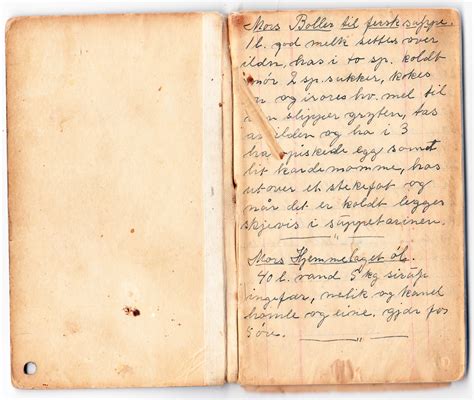 Mors Boller til fersksuppe.
1 l. god melk settes over
ilden, has i to sp. koldt
smör 2 sp. sukker, kokes
og irores hv. mel til
slipper gryten, tas
ilden og ha i 3
piskede egg samt
lit kardemomme, has
utover et stekefat og
når det er koldt legges
skjevis i suppeterinen.
Mors Hjemmelaget öl.
40 l. vand 5 kg sirup
ingefær, og kanel
homle og eine. gjær for
5 öre.